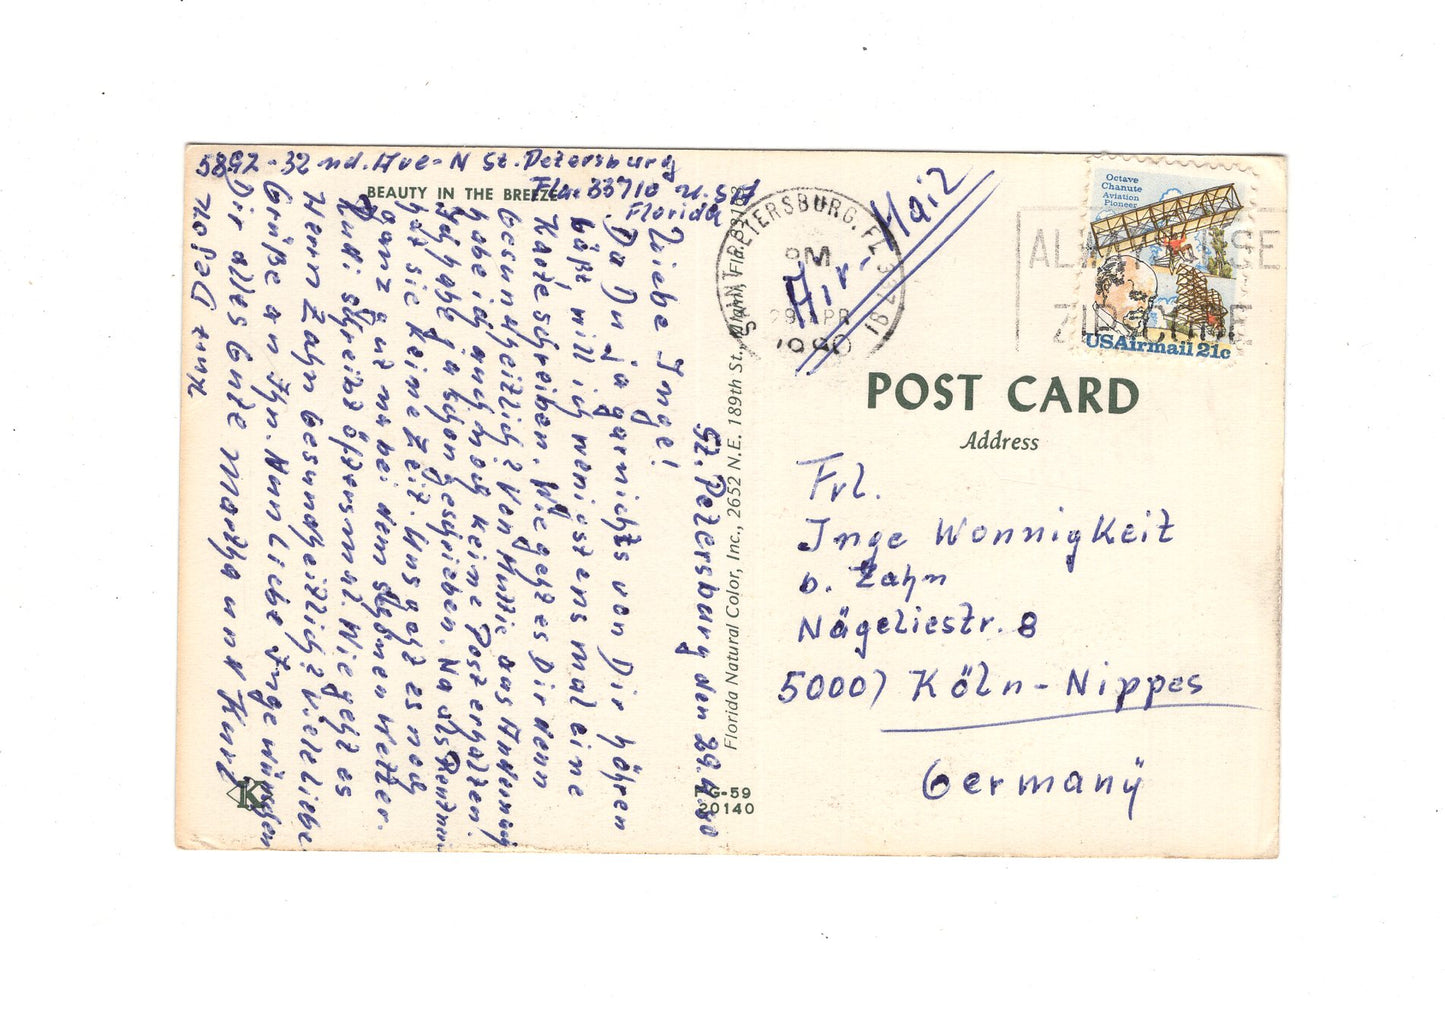 5892-32 nd. Ave-N St. Petersburg
Fla. 33710 U.S.A
Florida
BEAUTY IN THE BREEZE
St. Petersburg den 29.4.80
Liebe Inge!
Da Du ja garnichts von Dir höhren
läßt, will ich wenigstens mal eine
Kate schreiben. Wie geht es Dir denn
Gesundheitlich? Von Mutti aus
habe ich auch noch keine Post erhalten.
Ich habe ja schon geschrieben. Na als Rentnerin
hat sie keine Zeit. Uns geht es noch
ganz gut na bei dem schönen Wetter.
Rudi schreibt öftersmal. Wie geht es
Herrn Zahn Gesundheitlich? Viele liebe
Grüße an Ihn. Nun liebe Inge wünschen
Dir alles Gute Martha und Kurt
Florida Natural Color, Inc., 2652 N.E. 189th St., Miami, Fla. 33163
K
G-59
20140
SAINT PETERSBURG, FL 337 B1
PM
29 APR
1980
Air-Mail
ALWAYS USE
ZIP CODE
Octave
Chanute
Aviation
Pioneer
USAirmail 21c
POST CARD
Address
Frl.
Inge Wonnigkeit
b. Zahn
Nägeliestr. 8
5000) Köln-Nippes
Germany